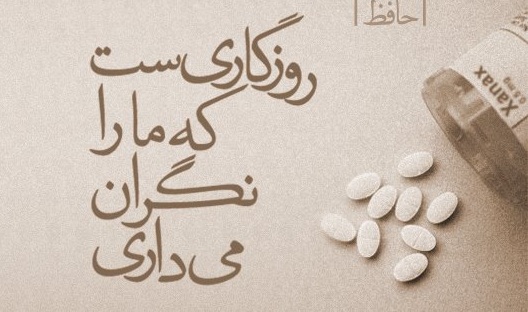 حافظ
روزگاری‌ست
که ما را
نگران
می‌داری
Xanax